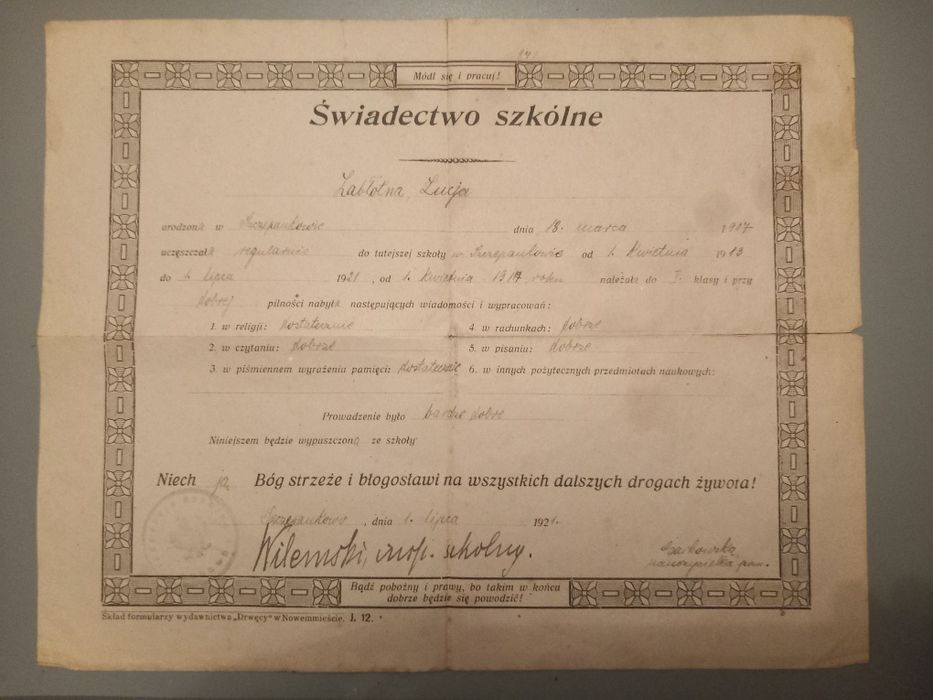 Módl się i pracuj!
Świadectwo szkólne
Zabłotna, Lucja
urodzona w Szczepankowie dnia 18. marca 1907
uczęszczała regularnie do tutejszej szkoły w Szczepankowie od 1. Kwietnia 1913
do 1. lipca 1921, od 1. Kwietnia 1917 roku należała do I. klasy i przy
dobrej pilności nabyła następujących wiadomości i wypracowań:
1. w religji: dostatecznie 4. w rachunkach: dobrze
2. w czytaniu: dobrze 5. w pisaniu: dobrze
3. w piśmiennem wyrażenia pamięci: dostatecznie 6. w innych pożytecznych przedmiotach naukowych:
Prowadzenie było bardzo dobre
Niniejszem będzie wypuszczoną ze szkoły
Niech ją Bóg strzeże i błogosławi na wszystkich dalszych drogach żywota!
Szczepankowo, dnia 1. lipca 1921.
Wilemski, insp. szkolny.
nauczycielka pom.
Bądź pobożny i prawy, bo takim w końcu
dobrze będzie się powodzić!
Skład formularzy wydawnictwa „Drwęcy" w Nowemmieście. I. 12.